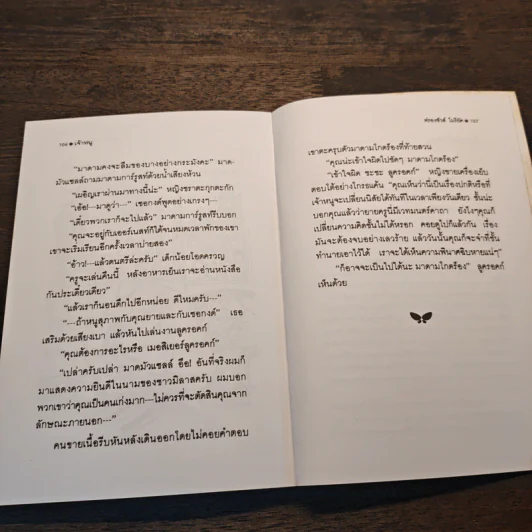 ๑๐๖ ● เจ้าหนู
"มาดามคงจะลืมของบางอย่างกระมังคะ" มาด-
มัวแซลล์ถามมาดามการ์รูสท์ด้วยน้ำเสียงห้วน
"เผอิญเราผ่านมาทางนี้น่ะ" หญิงชราตะกุกตะกัก
"เอ้อ!—มาดูว่า—" เธอกงค์พูดอย่างเกรงๆ—
"เดี๋ยวพวกเราก็จะไปแล้ว" มาดามการ์รูสท์รีบบอก
"คุณจะอยู่กับเออร์เนสท์ก็ได้จนหมดเวลาพักของเขา
เขาจะเริ่มเรียนอีกครั้งเวลาบ่ายสอง"
"อ้าว!—แล้วดนตรีล่ะครับ" เด็กน้อยโอดครวญ
"ครูจะเล่นคืนนี้ หลังอาหารเย็นเราจะอ่านหนังสือ
กันประเดี๋ยวเดียว"
"แล้วเราก็นอนดึกไปอีกหน่อย ดีไหมครับ—"
"—ถ้าหนูสุภาพกับคุณยายและกับเซอกงค์" เธอ
เสริมด้วยเสียงเบา แล้วหันไปเล่นงานลูครอคก์
"คุณต้องการอะไรหรือ เมอสิเยอร์ลูครอคก์"
"เปล่าครับเปล่า มาดมัวแซลล์ อือ! อันที่จริงผมก็
มาแสดงความยินดีในนามของชาวมิลาสครับ ผมบอก
พวกเขาว่าคุณเป็นคนเก่งมาก—ไม่ควรที่จะตัดสินคุณจาก
ลักษณะภายนอก—"
คนขายเนื้อรีบหันหลังเดินออกโดยไม่คอยคำตอบ
ฟรองซัวส์ โมริยัค ● ๑๐๗
เขาตะครุบตัวมาดามโกตร์องที่ท้ายสวน
"คุณน่ะเข้าใจผิดไปชัดๆ มาดามโกตร์อง"
"เข้าใจผิด ชะชะ ลูครอคก์" หญิงขายเครื่องเย็บ
ตอบได้อย่างโกรธแค้น "คุณเห็นว่านี่เป็นเรื่องปกติหรือที่
เจ้าหนูจะเปลี่ยนนิสัยได้ทันทีในเวลาเพียงวันเดียว ชั้นน่ะ
บอกคุณแล้วว่ายายครูนี่มีเวทมนตร์คาถา ยังไงๆคุณก็
เปลี่ยนความคิดชั้นไม่ได้หรอก คอยดูไปก็แล้วกัน เรื่อง
มันจะต้องจบอย่างเลวร้าย แล้ววันนั้นคุณก็จะจำที่ชั้น
ทำนายเอาไว้ได้ เราจะได้เห็นความพินาศฉิบหายแน่ๆ"
"ก็อาจจะเป็นไปได้นะ มาดามโกตร์อง" ลูครอคก์
เห็นด้วย